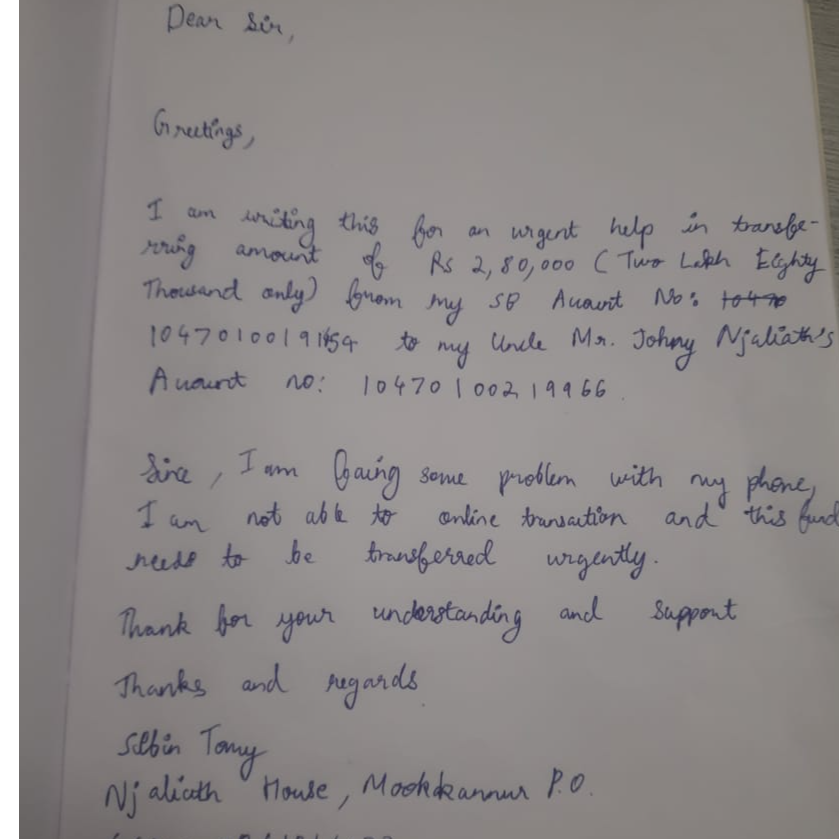 Dear Sir,
Greetings,
I am writing this for an urgent help in transfe-
rring amount of Rs 2,80,000 (Two Lakh Eighty
Thousand only) from my SB Account No:
to my Uncle Mr. Johny Njaliath's
Account no: 10470100219966
Since, I am facing some problem with my phone,
I am not able to online transaction and this fund
needs to be transferred urgently.
Thank for your understanding and support
Thanks and regards
Selbin Tomy
Njaliath House, Mookkannur P.O.